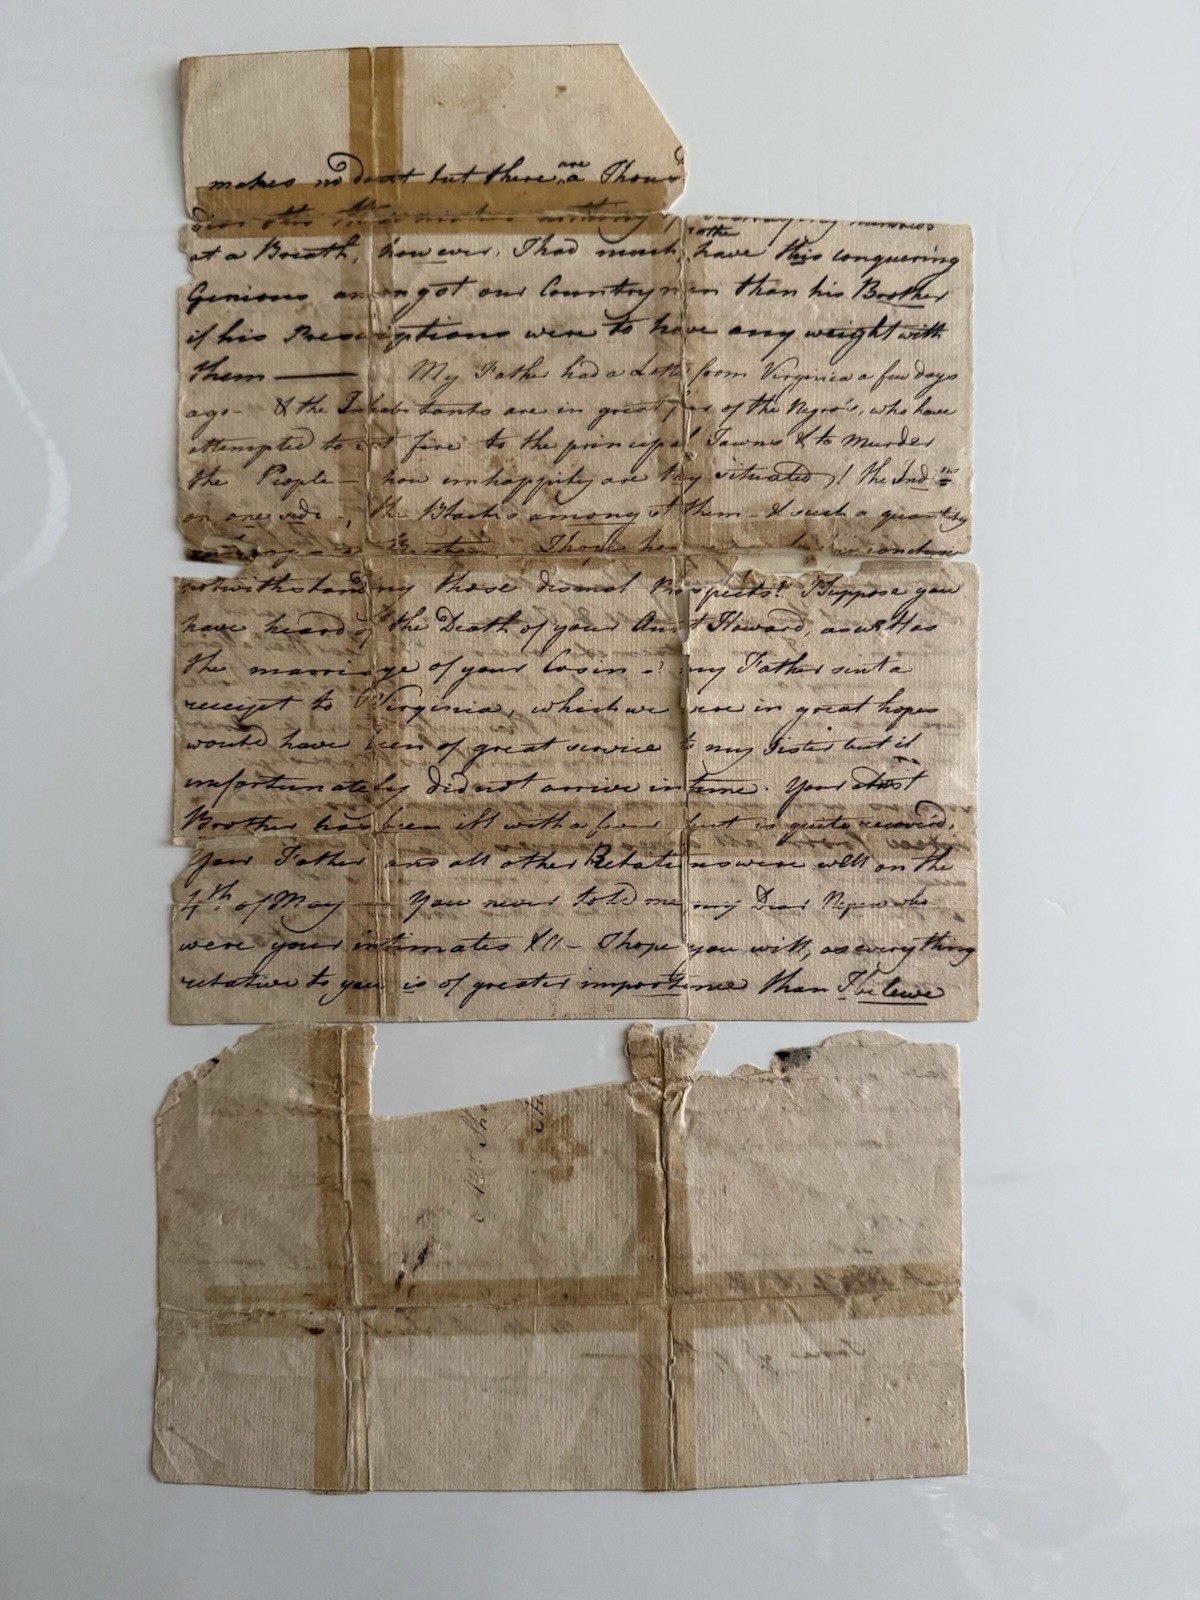 makes no doubt but there are a Thous
at a Breath, however, I had much rather have this conquering
Genious amongst our Countrymen than his Brother
if his Prescriptions were to have any weight with
them — My Father had a Letter from Virginia a few days
ago - & the Inhabitants are in great fear of the Negro's, who have
attempted to set fire to the principal Towns & to Murder
the People — how unhappily are they situated! the Ind.ns
on one side -, the Blacks among st them - & such a quantity
notwithstanding those dismal Prospects! I suppose you
have heard of the Death of your Aunt Howard, as well as
the marriage of your Cosin my Father sent a
receipt to Virginia, which we were in great hopes
would have been of great service to my Sister but it
unfortunately did not arrive in time. Your
Brother has been ill with a fever, but is quite recover'd,
Your Father and all other Relations were well on the
4th of May — You never told me my Dear who
were your intimates &c - I hope you will, as everything
relative to you is of greater importance than I beleive